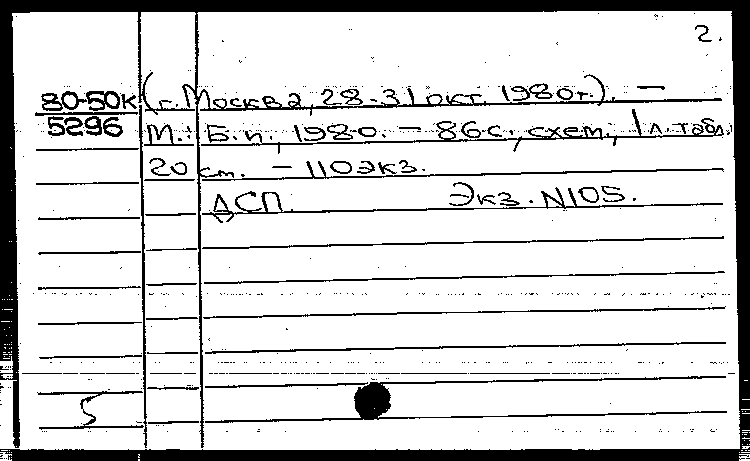 2.
80-50к (г. Москва, 28-31 окт. 1980г.). —
5296 М.: Б.и., 1980. — 86с., схем., 1 л. табл.
20 см. — 110 экз.
ДСП. Экз. N105.
5